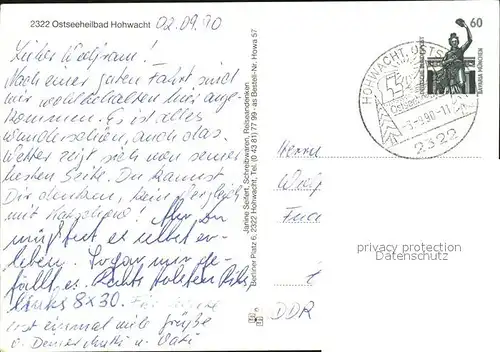 2322 Ostseeheilbad Hohwacht
02.09.90
Lieber Wolfram!
Nach einer guten Fahrt sind
wir wohlbehalten hier ange-
kommen. Es ist alles
wunderschön, auch das
Wetter zeigt sich von seiner
besten Seite. Du kannst
Dir denken, kein Vergleich
mit
Aber Du
müßtest es selbst er-
leben. Sogar mir ge-
fällt es. Rechts Holsten Pils,
links 8x30. Für heute
erst einmal viele Grüße
v. Deiner Mutti u. Vati
Janine Seifert, Schreibwaren, Reiseandenken
Berliner Platz 6, 2322 Hohwacht, Tel. (0 43 81) 77 99 - as Bestell-Nr. Howa 57
60
DEUTSCHE BUNDESPOST
BAVARIA MÜNCHEN
HOHWACHT, OSTSEE
-3.-9.90-11
2322
Herrn
Wolf
DDR
privacy protection
Datenschutz